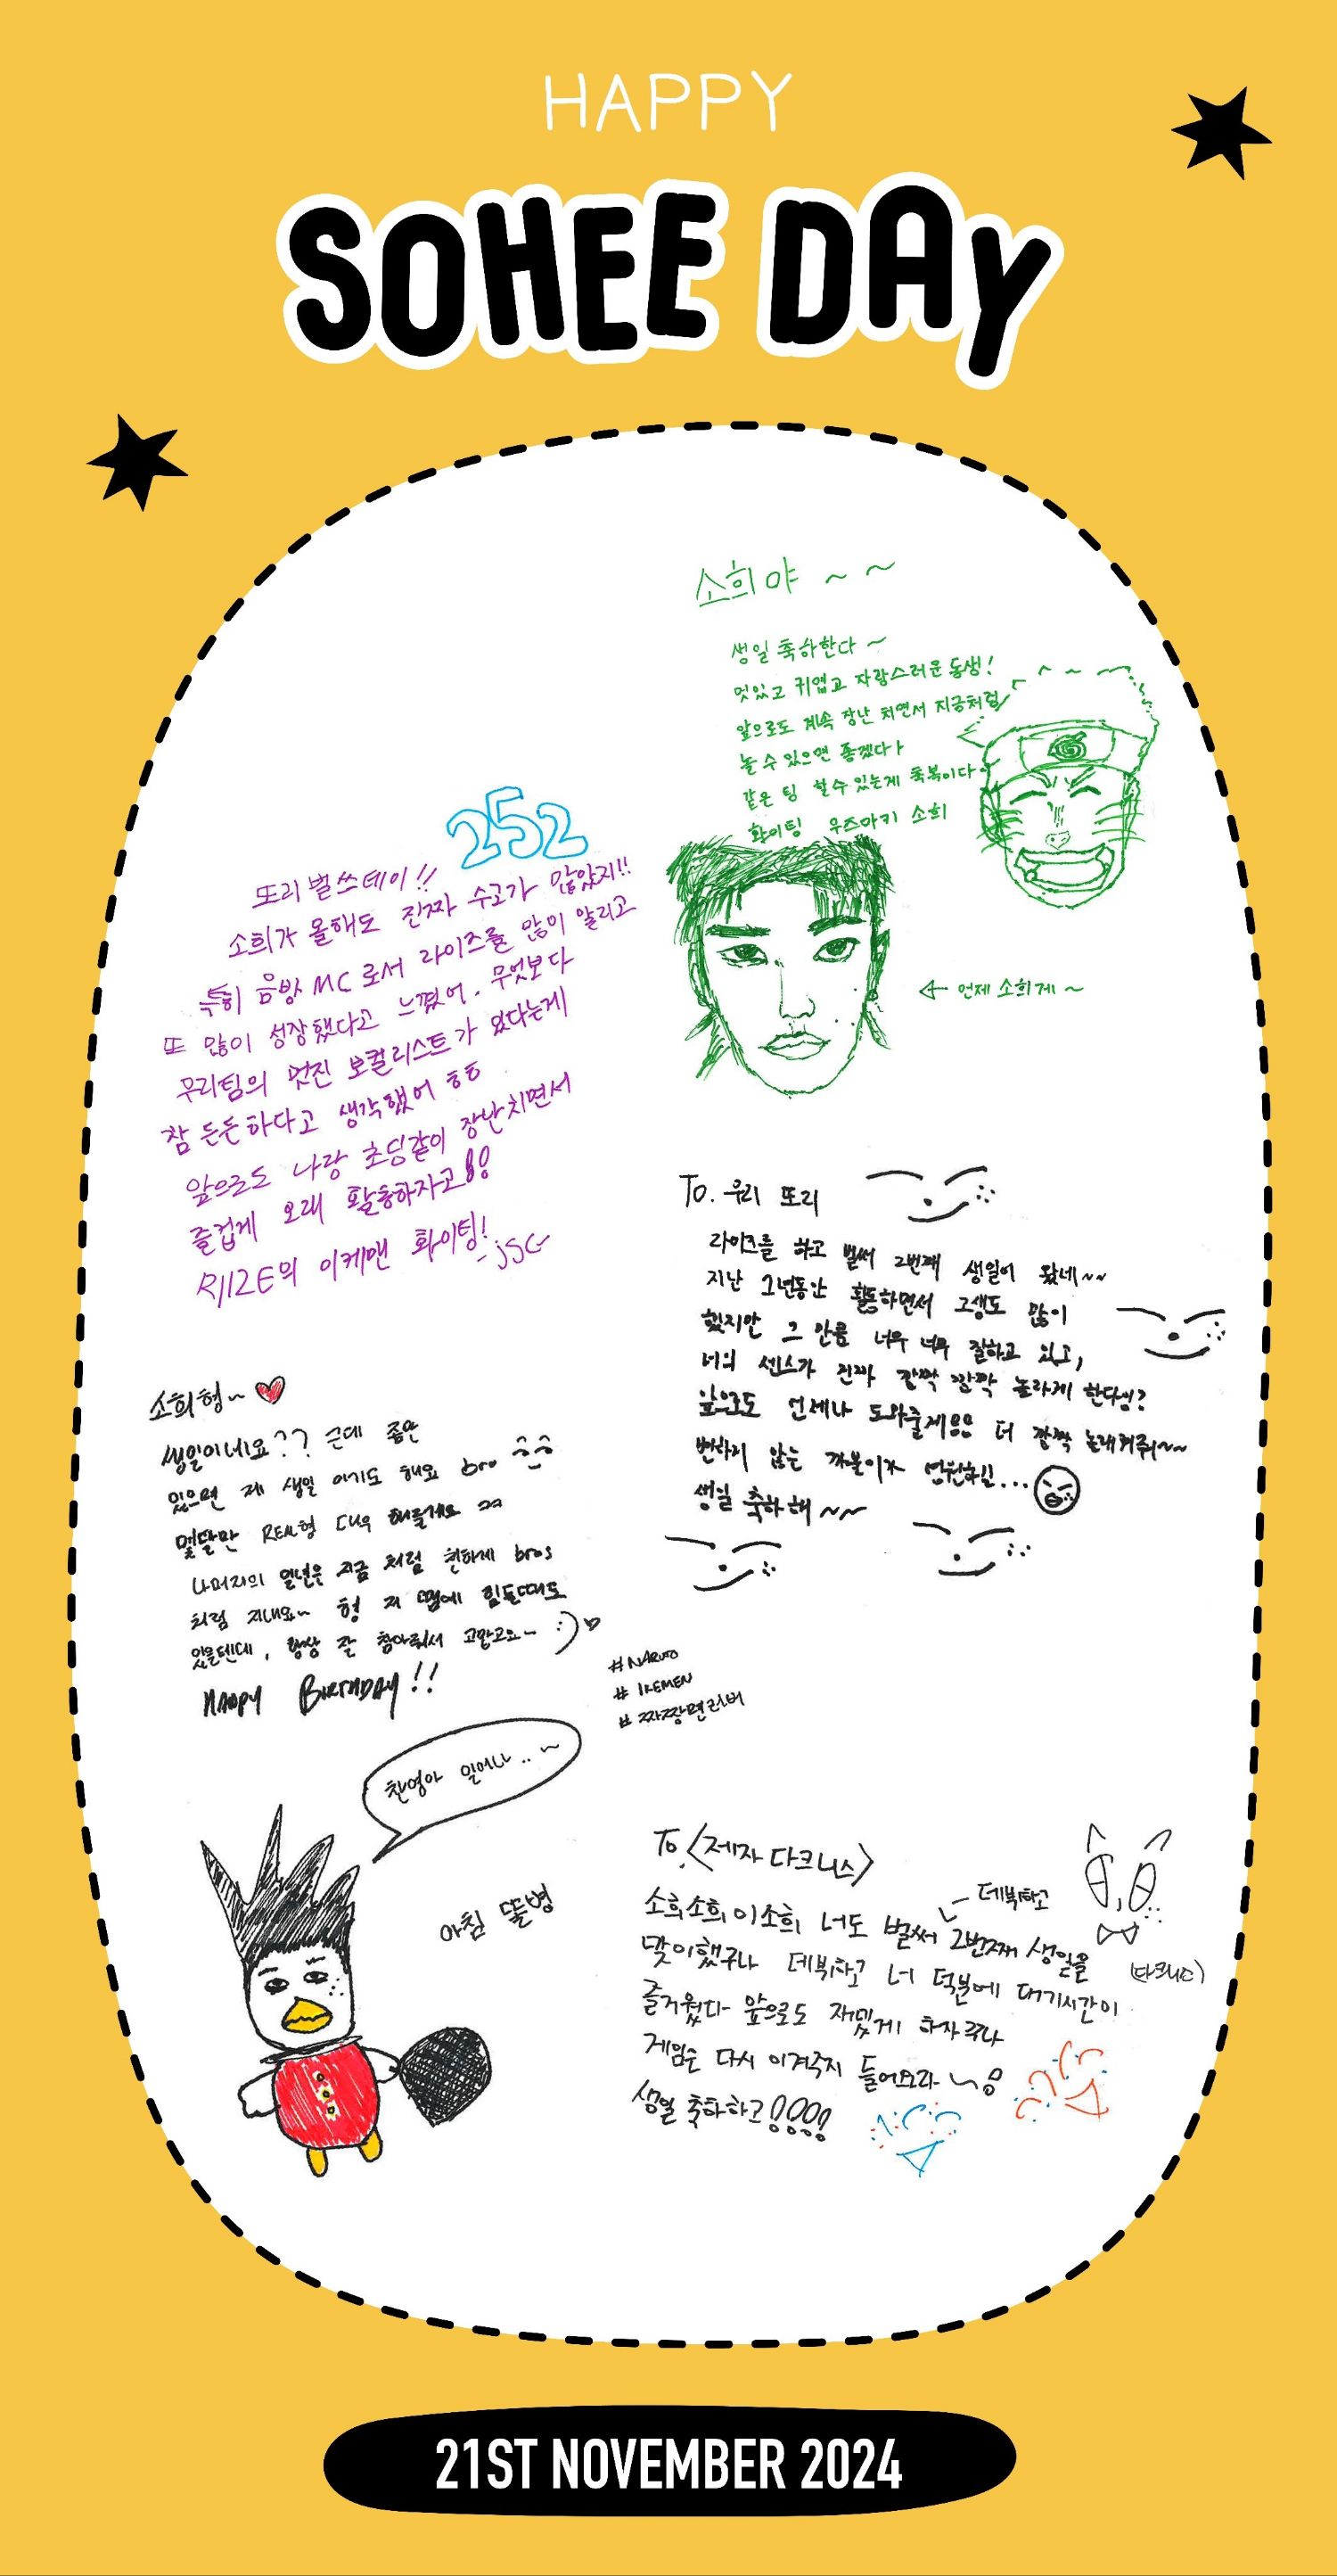 HAPPY
SOHEE DAY
소희야 ~ ~
생일 축하한다 ~
멋있고 귀엽고 자랑스러운 동생!
앞으로도 계속 장난 치면서 지금처럼
놀 수 있으면 좋겠다
같은 팀 할 수 있는게 축복이다
화이팅 우즈마키 소희
← 언제 소희게 ~
252
또리 벌쓰데이!!
소희가 올해도 진짜 수고가 많았지!!
특히 음방 MC로서 라이즈를 많이 알리고
또 많이 성장했다고 느꼈어. 무엇보다
우리팀의 멋진 보컬리스트가 있다는게
참 든든하다고 생각했어 ㅎㅎ
앞으로도 나랑 초딩같이 장난치면서
즐겁게 오래 활동하자고!!
RIIZE의 이케맨 화이팅!
-jsc-
To. 우리 또리
라이즈를 하고 벌써 2번째 생일이 왔네~~
지난 1년동안 활동하면서 고생도 많이
했지만 그 만큼 너무 너무 잘하고 있고,
너의 센스가 진짜 깜짝 깜짝 놀라게 한다잉?
앞으로도 언제나 도와줄게 더 깜짝 놀래켜줘~~
변하지 않는 까불이가 영원하길...
생일 축하해 ~~
소희형~ ♥
생일이네요?? 근데 좀만
있으면 제 생일 이기도 해요 bro ^^
몇달만 REAL형 대우 해줄게요 ㅋㅋ
나머지의 일년은 지금 처럼 편하게 bros
처럼 지내요~ 형 저 땜에 힘들때도
있을텐데, 항상 잘 참아줘서 고맙고요~ :) ♡
HAPPY BIRTHDAY!!
#NARUTO
#IKEMEN
#짜장면러버
찬영아 일어나..~
아침 똘병
To.<제자 다크니스>
소희소희이소희 너도 벌써 2번째 생일을
데뷔하고
맞이했구나 데뷔하고 너 덕분에 대기시간이
즐거웠다 앞으로도 재밌게 하자꾸나
게임은 다시 이겨주지 들어오라
생일 축하하고!!!!
21ST NOVEMBER 2024